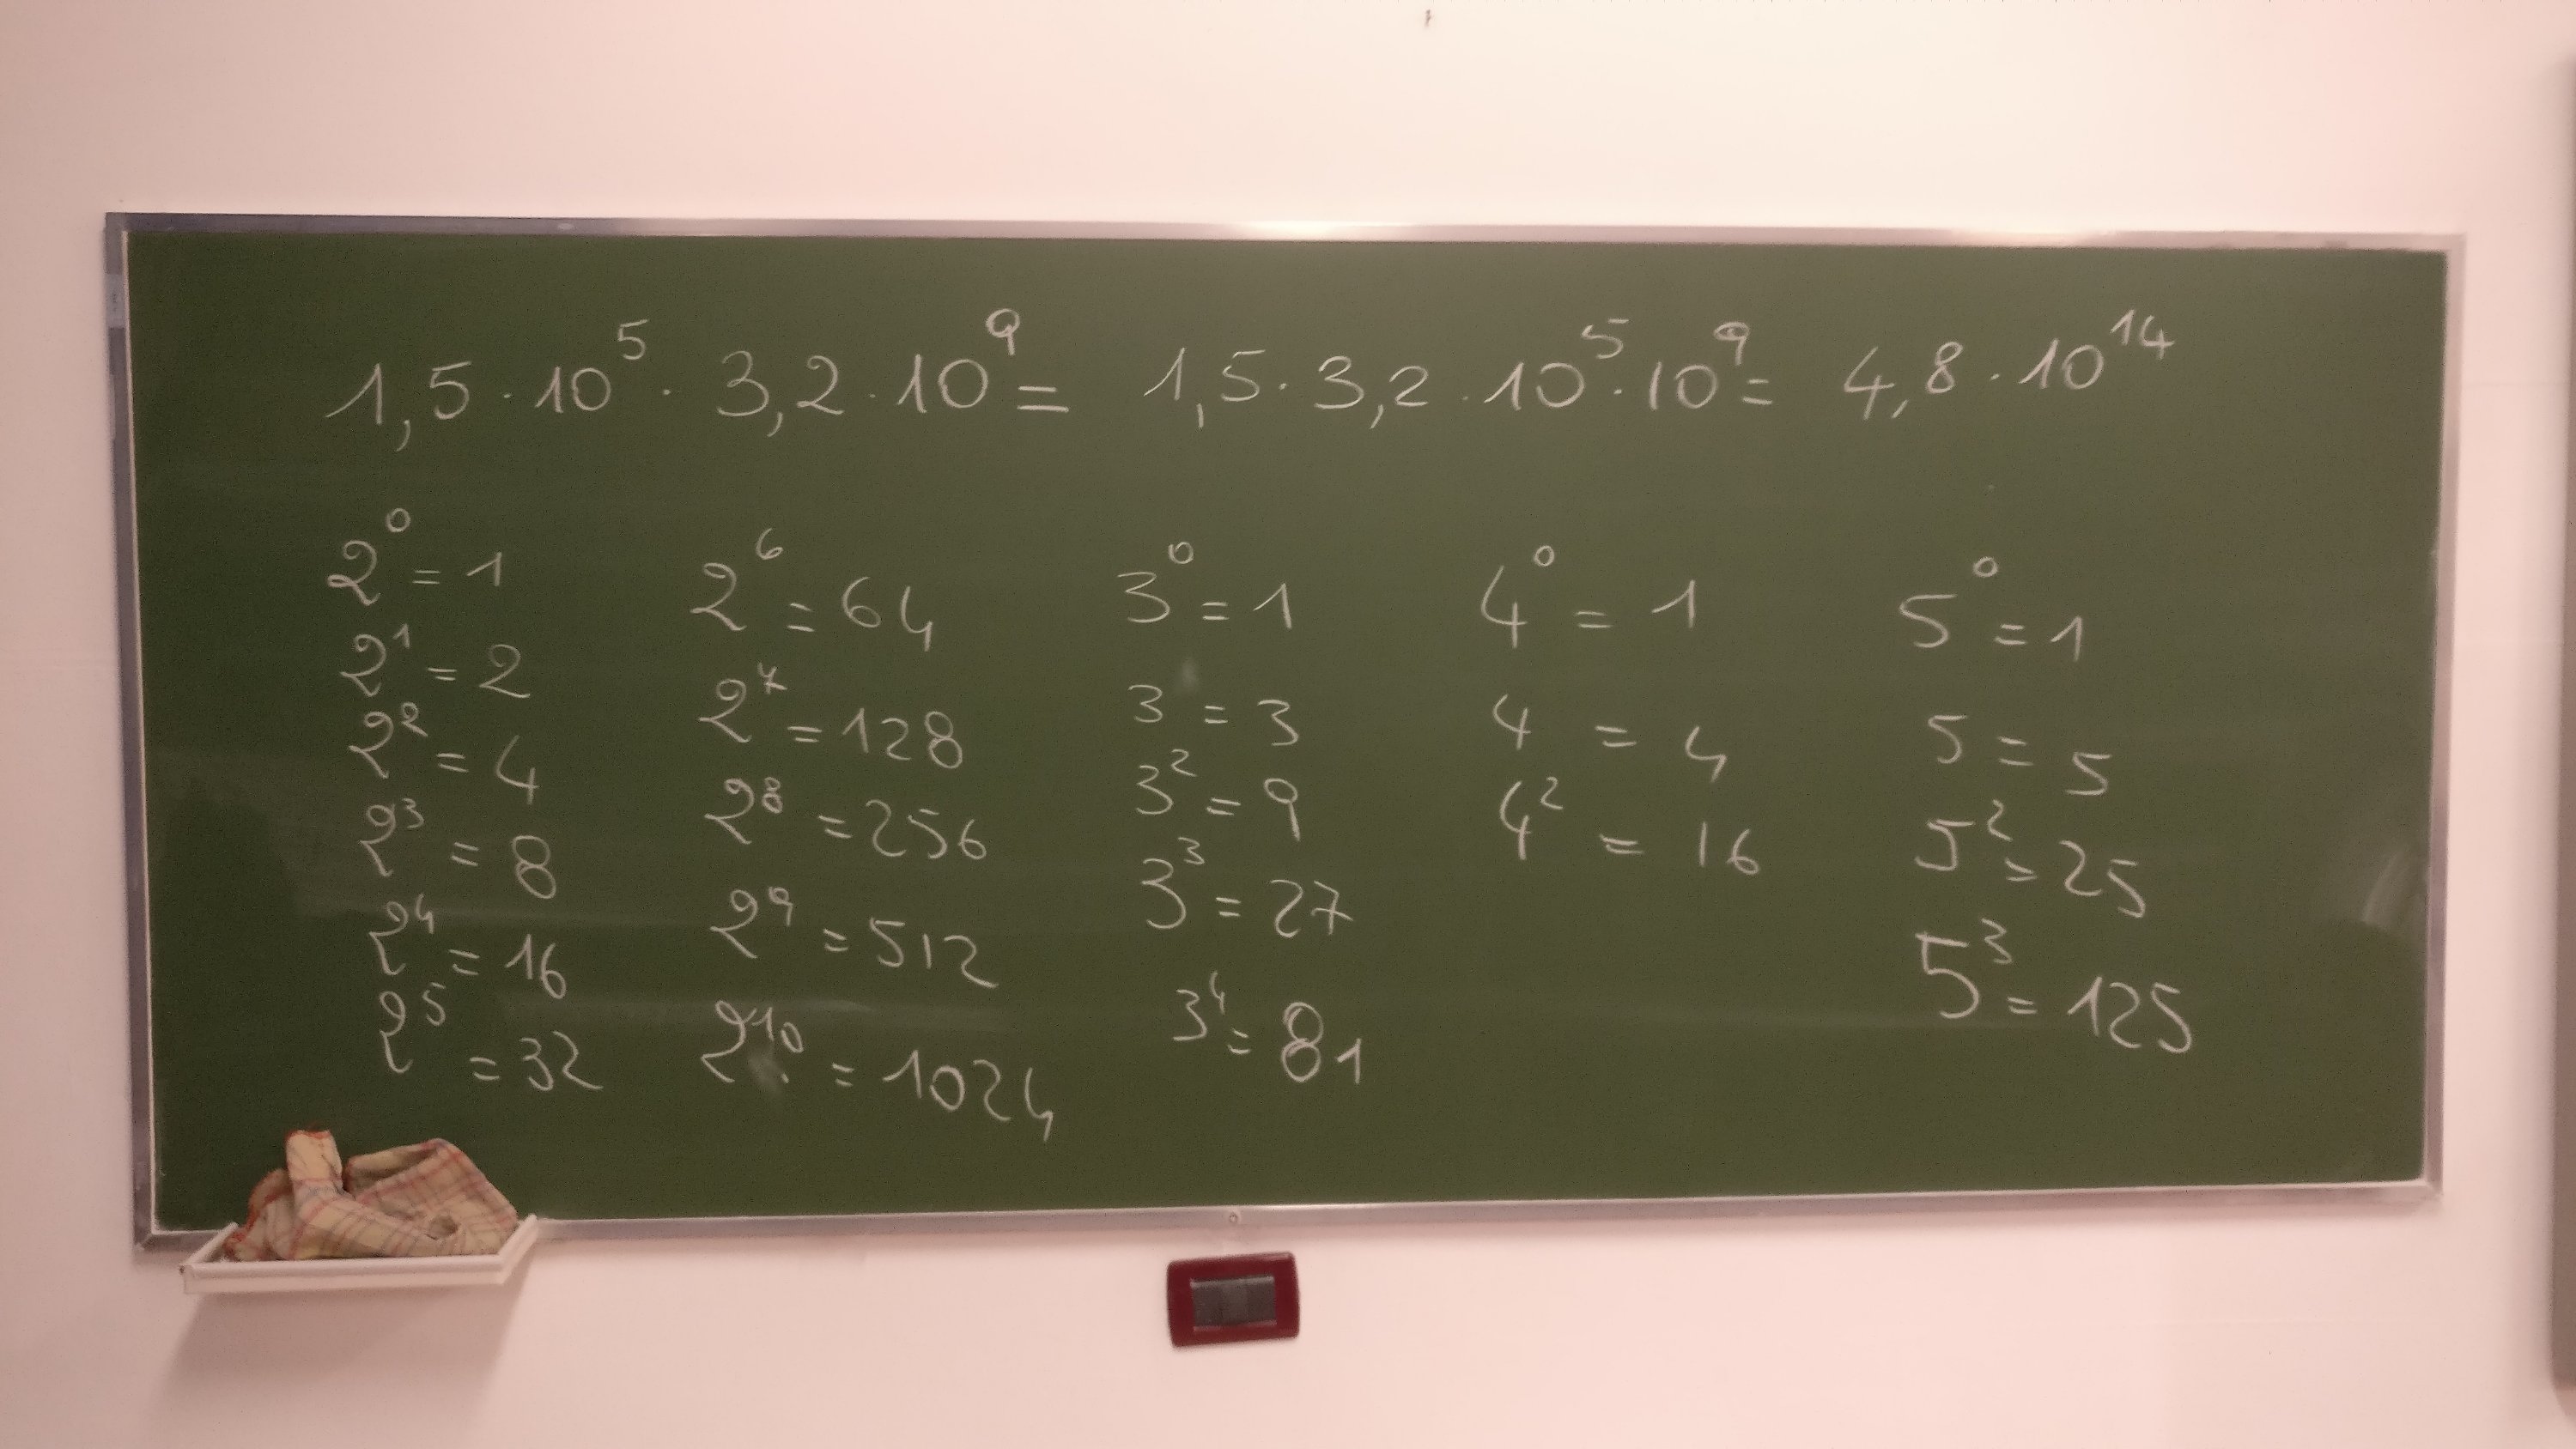 1,5 · 10⁵ · 3,2 · 10⁹ = 1,5 · 3,2 · 10⁵ · 10⁹ = 4,8 · 10¹⁴
2⁰ = 1
2¹ = 2
2² = 4
2³ = 8
2⁴ = 16
2⁵ = 32
2⁶ = 64
2⁷ = 128
2⁸ = 256
2⁹ = 512
2¹⁰ = 1024
3⁰ = 1
3 = 3
3² = 9
3³ = 27
3⁴ = 81
4⁰ = 1
4 = 4
4² = 16
5⁰ = 1
5 = 5
5² = 25
5³ = 125